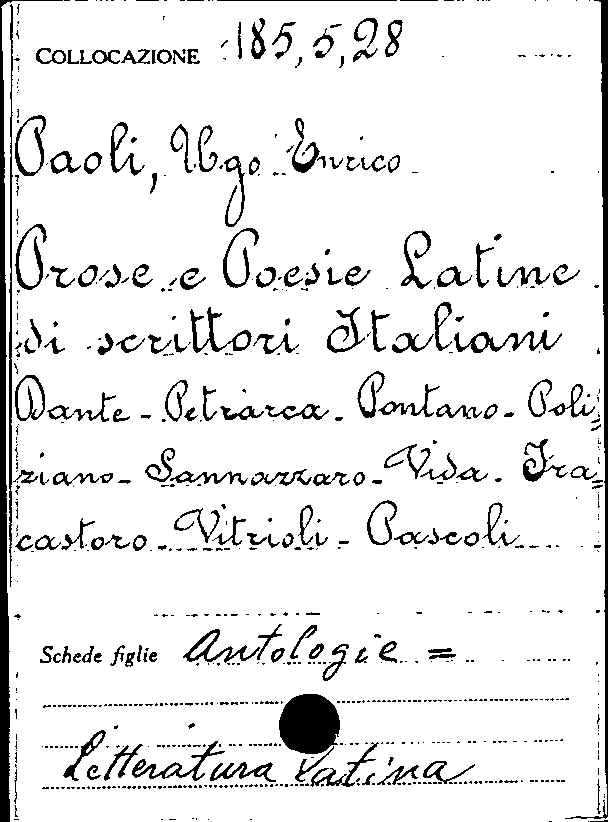 COLLOCAZIONE 185,5,28
Paoli, Ugo Enrico
Prose e Poesie Latine
di scrittori Italiani
Dante - Petrarca - Pontano - Poli=
ziano - Sannazzaro - Vida - Fra=
castoro - Vitrioli - Pascoli
Schede figlie Antologie =
Letteratura Latina